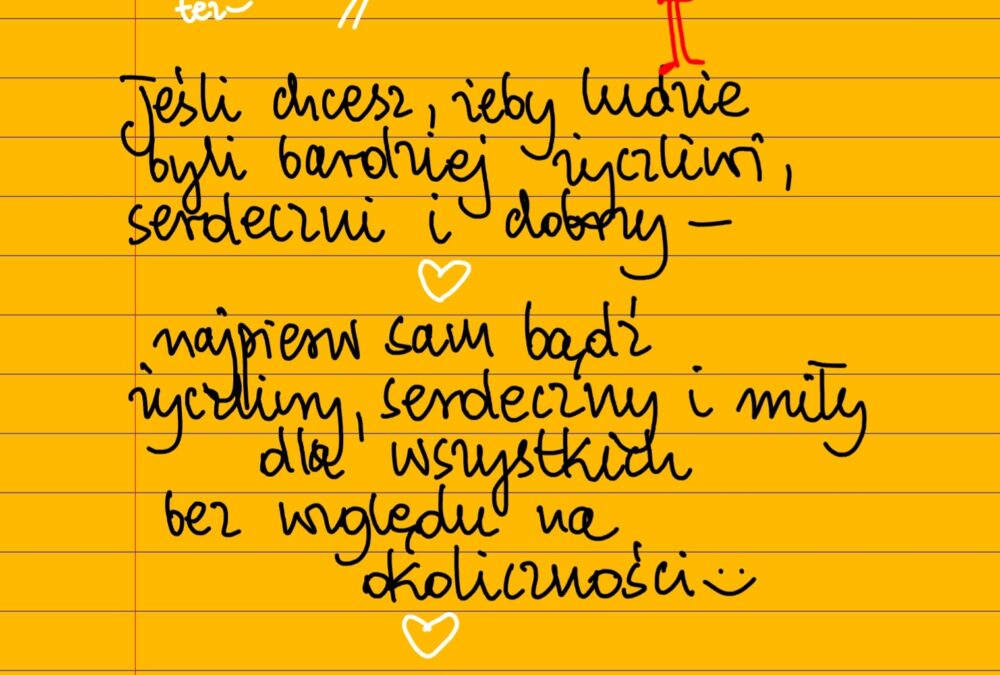 też
Jeśli chcesz, żeby ludzie
byli bardziej życzliwi,
serdeczni i dobrzy –
najpierw sam bądź
życzliwy, serdeczny i miły
dla wszystkich
bez względu na
okoliczności